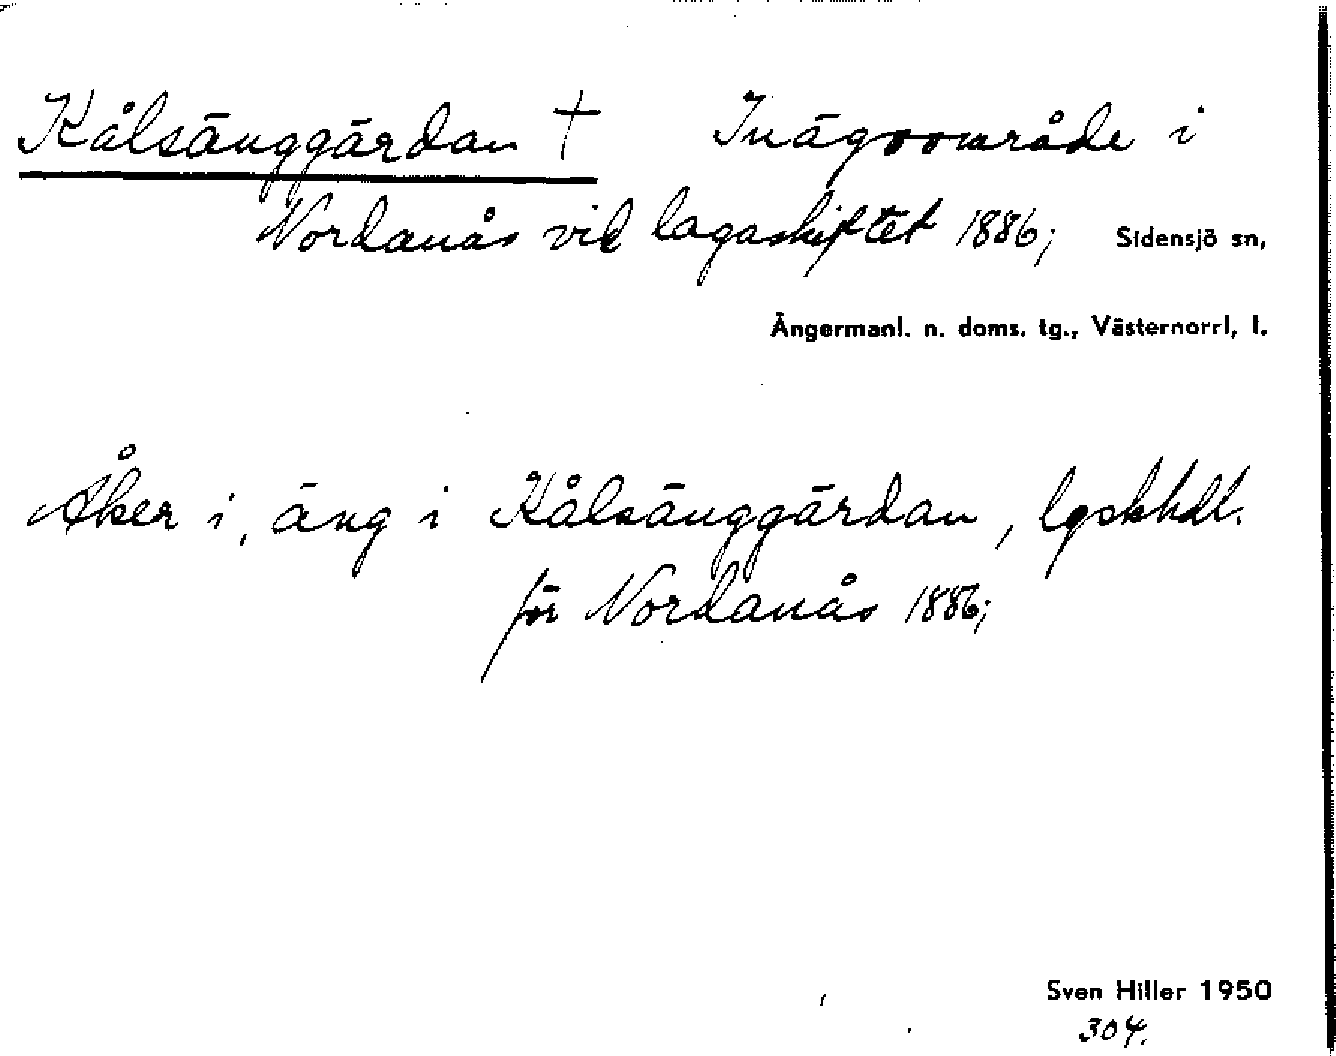 Kålsänggärdan † Inägoområde i
Nordanås vid lagaskiftet 1886; Sidensjö sn,
Ångermanl. n. doms. tg., Västernorrl, l.
Åker i, äng i Kålsänggärdan, lgskhdl.
för Nordanås 1886;
Sven Hiller 1950
304.